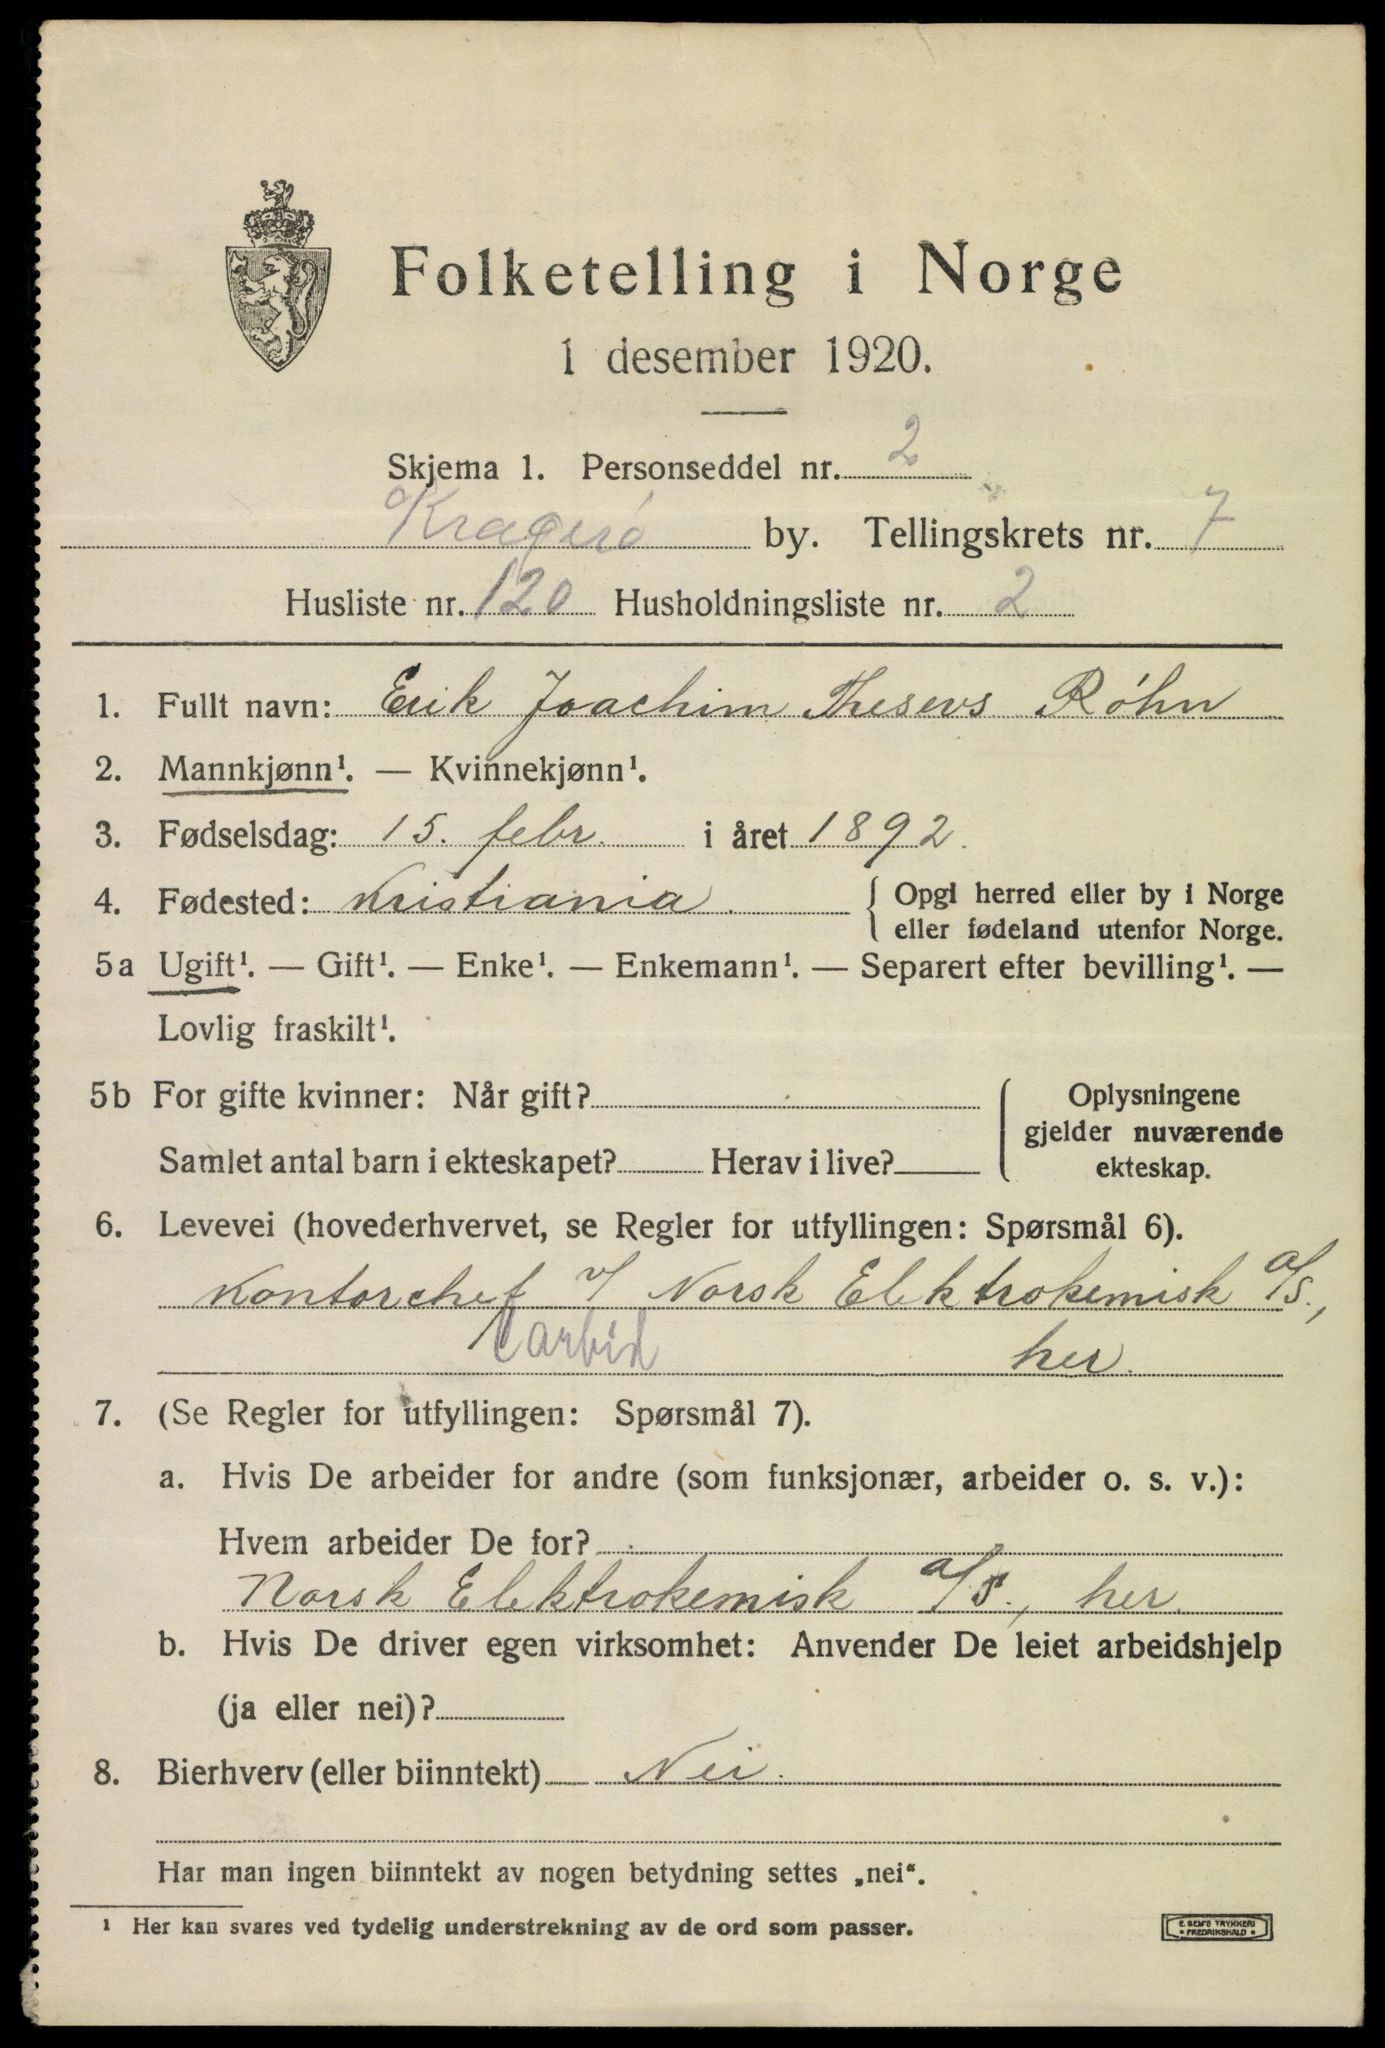 Folketelling i Norge
1 desember 1920.
Skjema 1. Personseddel nr. 2
Kragerö by. Tellingskrets nr. 7
Husliste nr. 120 Husholdningsliste nr. 2
1. Fullt navn: Erik Joachim Thesevs Röhn
2. Mannkjønn¹. — Kvinnekjønn¹.
3. Fødselsdag: 15. febr. i året 1892.
4. Fødested: Kristiania. { Opgi herred eller by i Norge
eller fødeland utenfor Norge.
5a Ugift¹. — Gift¹. — Enke¹. — Enkemann¹. — Separert efter bevilling¹. —
Lovlig fraskilt¹.
5b For gifte kvinner: Når gift? Oplysningene
gjelder nuværende
Samlet antal barn i ekteskapet? Herav i live? ekteskap.
6. Levevei (hovederhvervet, se Regler for utfyllingen: Spørsmål 6).
Kontorchef v/ Norsk Elektrokemisk a/s.,
Carbid her.
7. (Se Regler for utfyllingen: Spørsmål 7).
a. Hvis De arbeider for andre (som funksjonær, arbeider o. s. v.):
Hvem arbeider De for?
Norsk Elektrokemisk a/s., her.
b. Hvis De driver egen virksomhet: Anvender De leiet arbeidshjelp
(ja eller nei)?
8. Bierhverv (eller biinntekt) Nei.
Har man ingen biinntekt av nogen betydning settes „nei“.
¹ Her kan svares ved tydelig understrekning av de ord som passer.
E. SEM'S TRYKKERI
• FREDRIKSHALD •